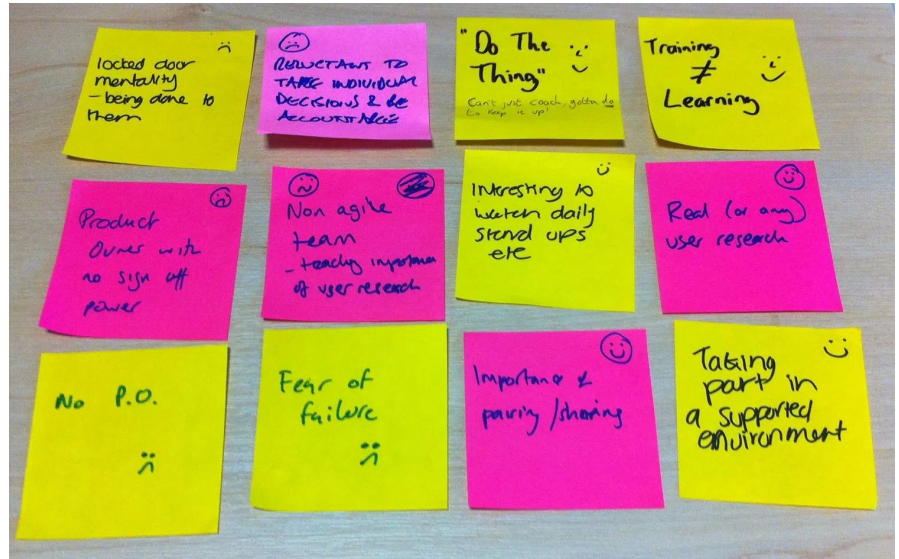 locked door
mentality
- being done to
them
RELUCTANT TO
TAKE INDIVIDUAL
DECISIONS & BE
ACCOUNTABLE
"Do The
Thing"
Can't just coach, gotta do
to keep it up!
Training
≠
Learning
Product
Owner with
no sign off
power
Non agile
team
- teaching importance
of user research
Interesting to
watch daily
stand ups
etc
Real (or any)
user research
No P.O.
Fear of
failure
Importance of
pairing/sharing
Taking
part in
a supported
environment